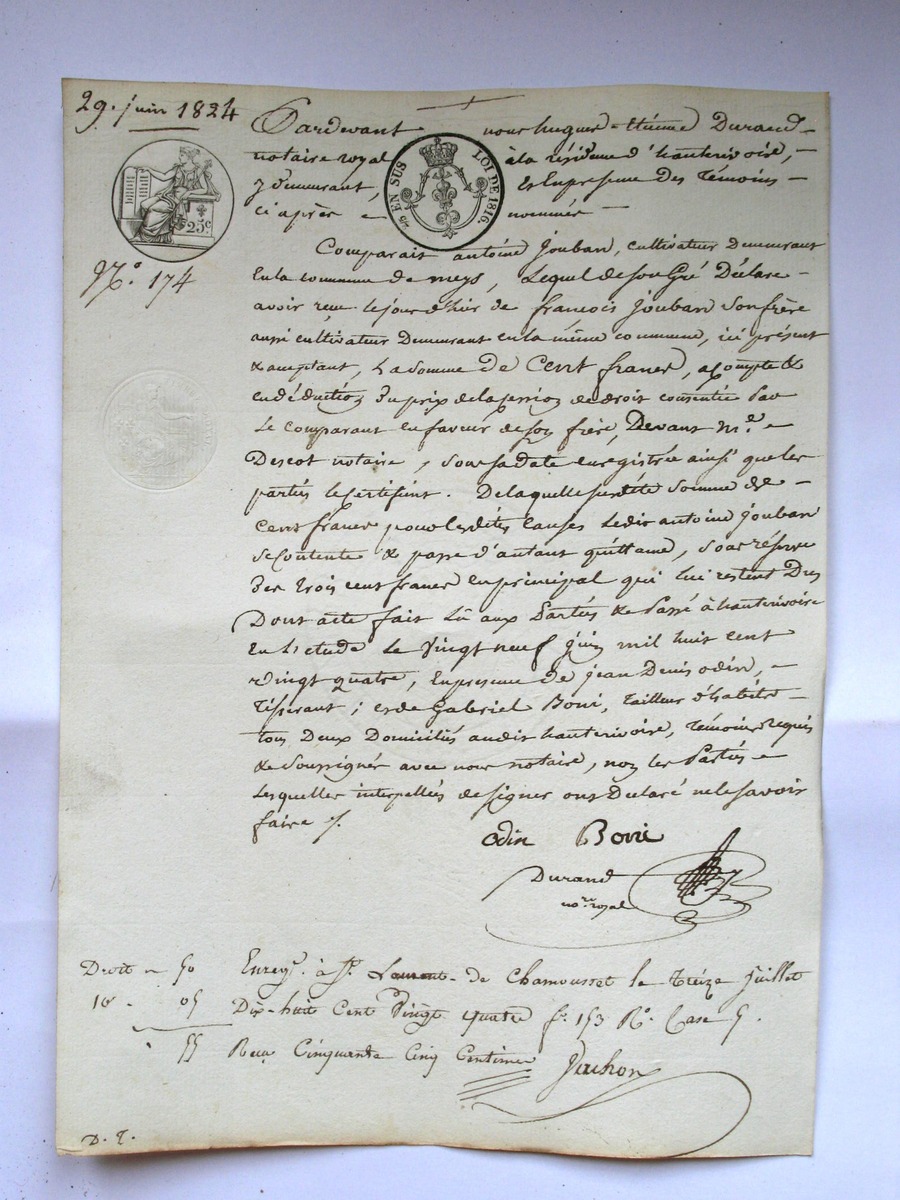 29. juin 1824
Pardevant nous hugues-étienne Durand
notaire royal à la résidence d'hauterivoire,
y demeurant, et En présence des Témoins
ci après nommés
EN SUS LOI DE 1816.
25c.
N.° 174
Comparait antoine jouban, cultivateur Demeurant
En la commune de meys, Lequel de son Gré Déclare
avoir reçu le jour d'hier de francois jouban son frère
aussi cultivateur Demeurant en la même commune, ici présent
& acceptant, La Somme de Cent francs, acompte &
en déduction du prix de la cession de droit consentie Par
le Comparant en faveur de son frère, Devant M.e
Descot notaire, sous sa date enregistrée ainsi que les
parties le Certifient. De laquelle susdite somme de
Cent francs pour lesdites causes ledit antoine jouban
se Contente & passe d'autant quittance, sous réserve
des trois cent francs en principal qui lui restent Dus
Dont acte fait Lu aux Parties & Passé à hauterivoire
En l'étude le Vingt neuf juin mil huit cent
vingt quatre, En présence de jean Denis odin,
Tisserant; et de Gabriel Boni, Tailleur d'habits
tous Deux Domiciliés audit hauterivoire, Témoins Requis
& Soussignés avec nous notaire, non les Parties
Lesquelles interpellées de signer ont Déclaré ne le savoir
faire
odin Boni
Durand
no.re royal
Droit 50
10. 05
55
Enreg. à St. Laurent de Chamousset le treize juillet
Dix-huit Cent Vingt quatre f.° 153 R.° Case 5.
Reçu Cinquante Cinq Centimes
D. T.